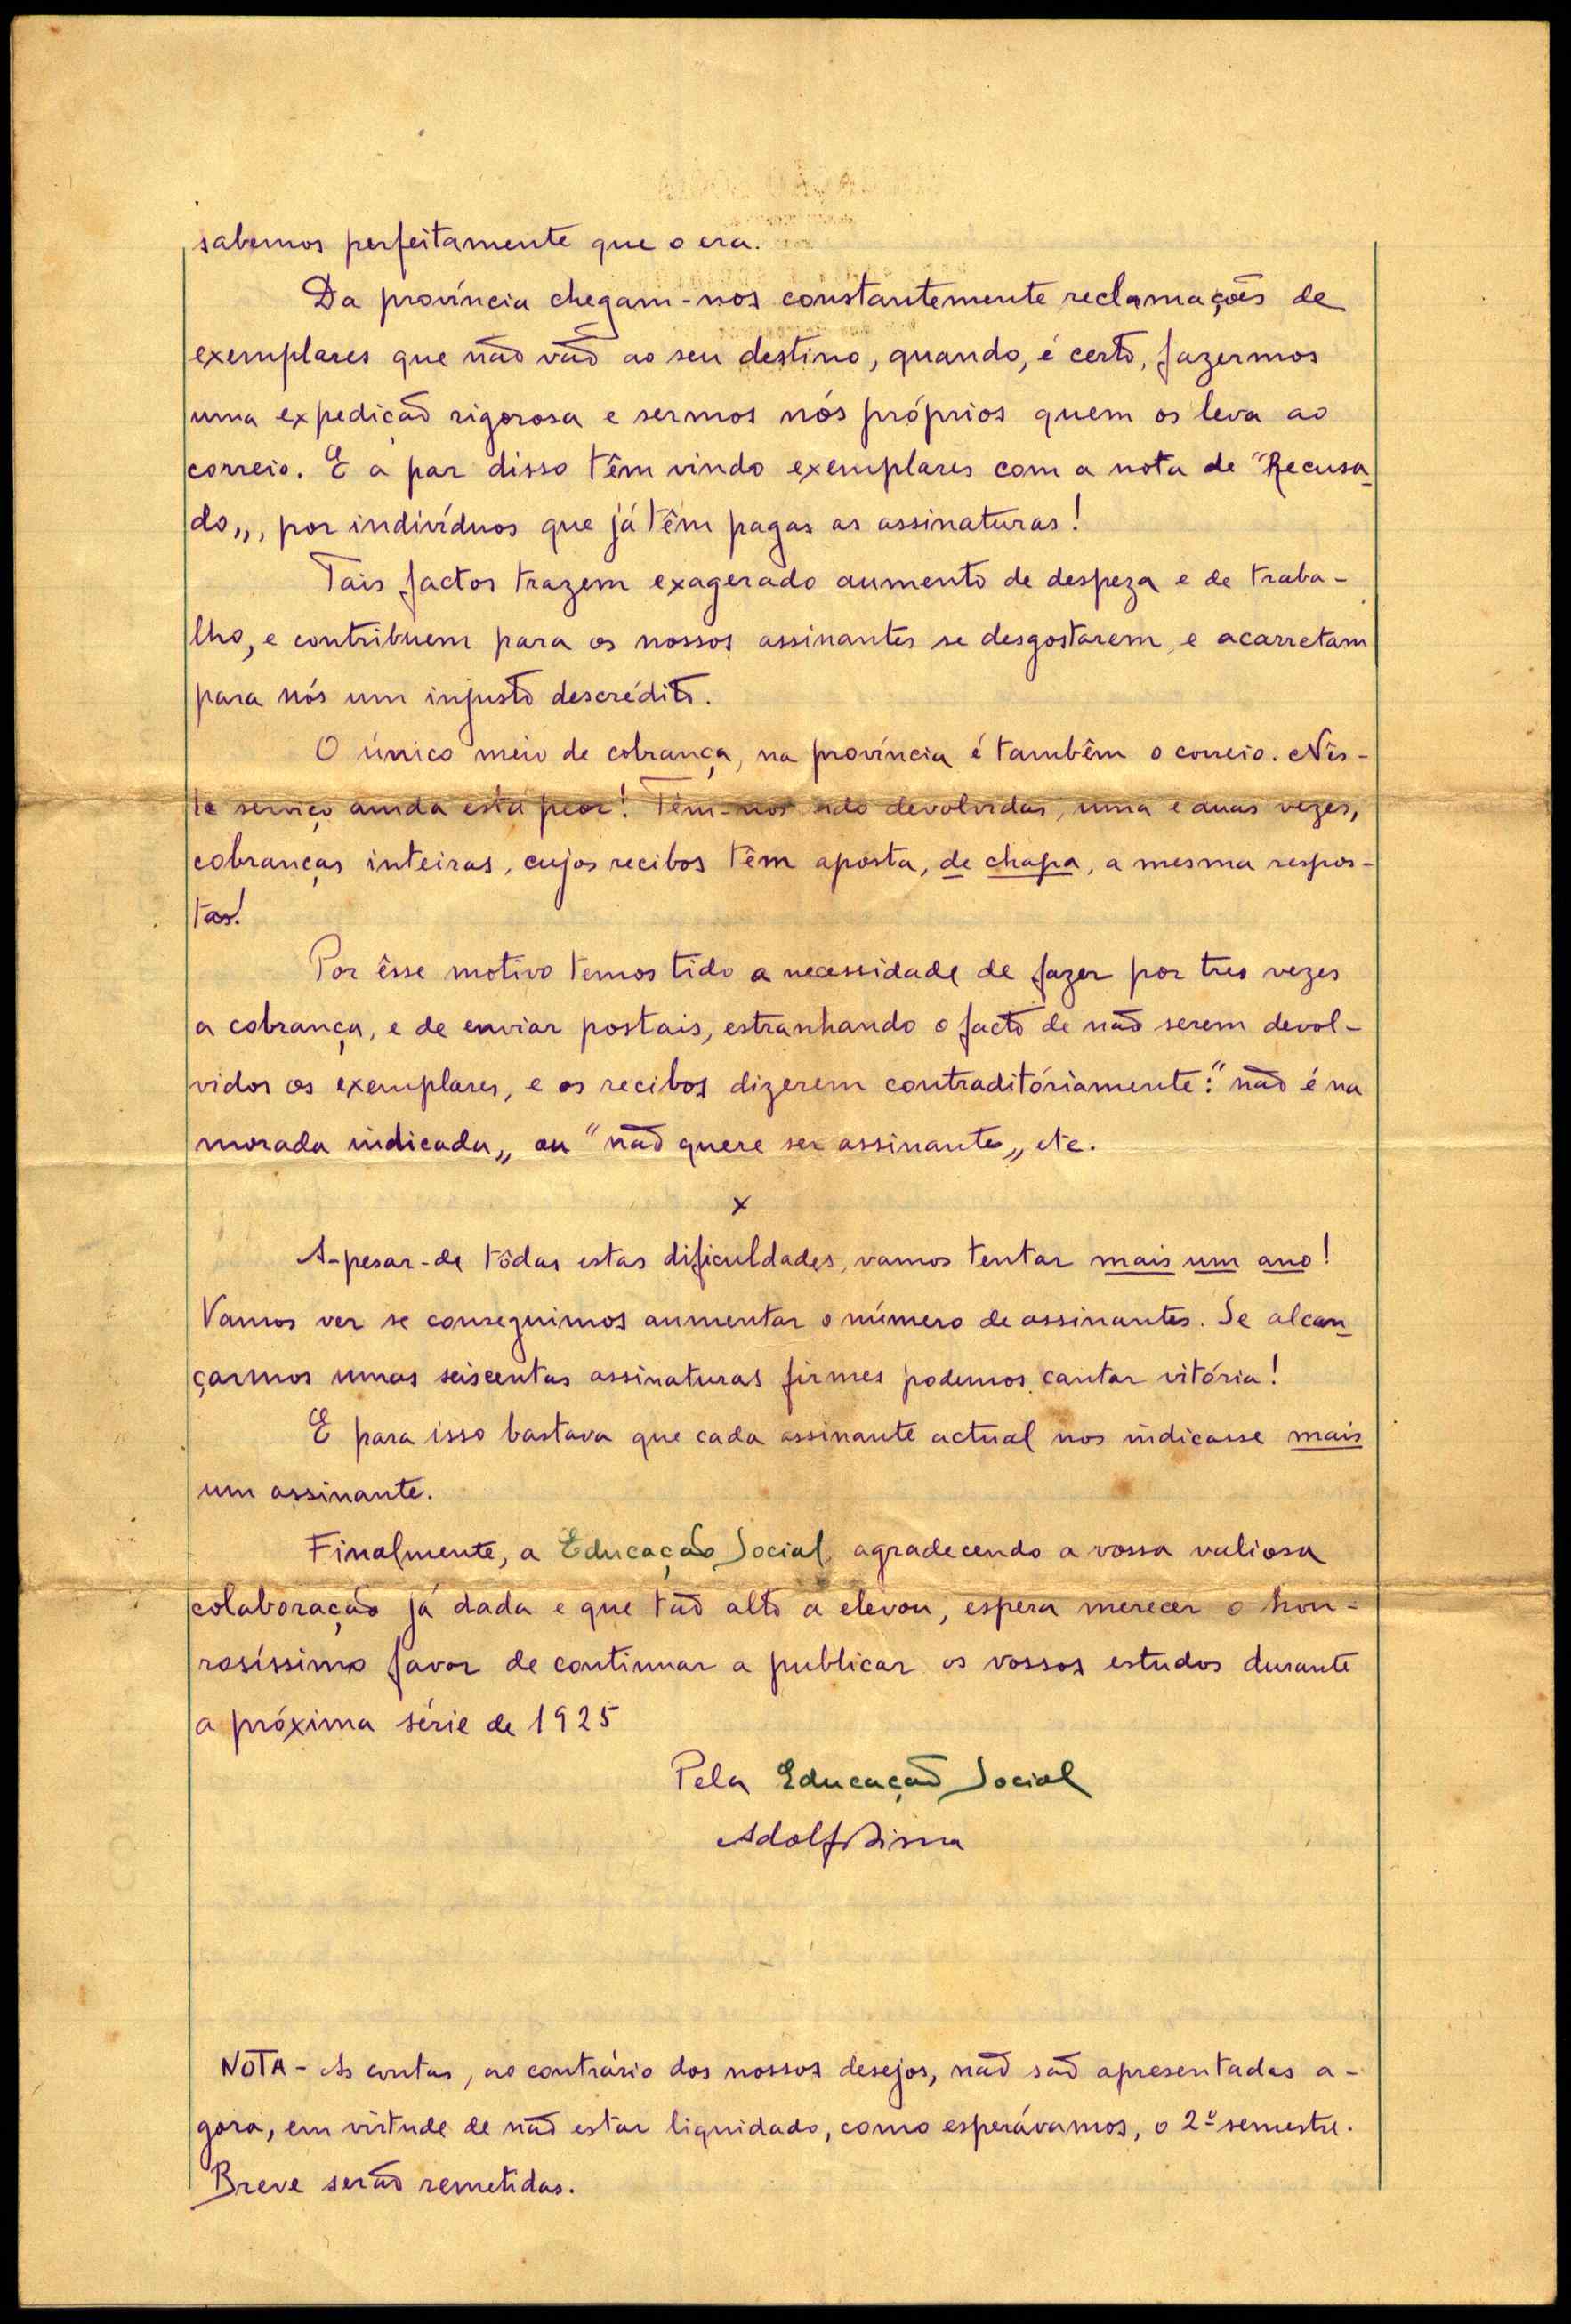 sabemos perfeitamente que o era.
Da província chegam-nos constantemente reclamações de
exemplares que não vão ao seu destino, quando, é certo, fazermos
uma expedição rigorosa e sermos nós próprios quem os leva ao
correio. E a par disso têm vindo exemplares com a nota de "Recusa-
do„, por indivíduos que já têm pagas as assinaturas!
Tais factos trazem exagerado aumento de despeza e de traba-
lho, e contribuem para os nossos assinantes se desgostarem, e acarretam
para nós um injusto descrédito.
O único meio de cobrança, na província é tambêm o correio. Nês-
te serviço ainda está peor! Têm-nos sido devolvidas, uma e duas vezes,
cobranças inteiras, cujos recibos têm aposta, de chapa, a mesma respos-
tas!
Por êsse motivo temos tido a necessidade de fazer por tres vezes
a cobrança, e de enviar postais, estranhando o facto de não serem devol-
vidos os exemplares, e os recibos dizerem contraditóriamente: "não é na
morada indicada„ ou "não quere ser assinante„ etc.
x
A-pesar-de tôdas estas dificuldades, vamos tentar mais um ano!
Vamos ver se conseguimos aumentar o número de assinantes. Se alcan-
çarmos umas seiscentas assinaturas firmes podemos cantar vitória!
E para isso bastava que cada assinante actual nos indicasse mais
um assinante.
Finalmente, a Educação Social, agradecendo a vossa valiosa
colaboração já dada e que tão alto a elevou, espera merecer o hon-
rosíssimo favor de continuar a publicar os vossos estudos durante
a próxima série de 1925
Pela Educação Social
Adolf Lima
NOTA - As contas, ao contrário dos nossos desejos, não são apresentadas a-
gora, em virtude de não estar liquidado, como esperávamos, o 2º semestre.
Breve serão remetidas.